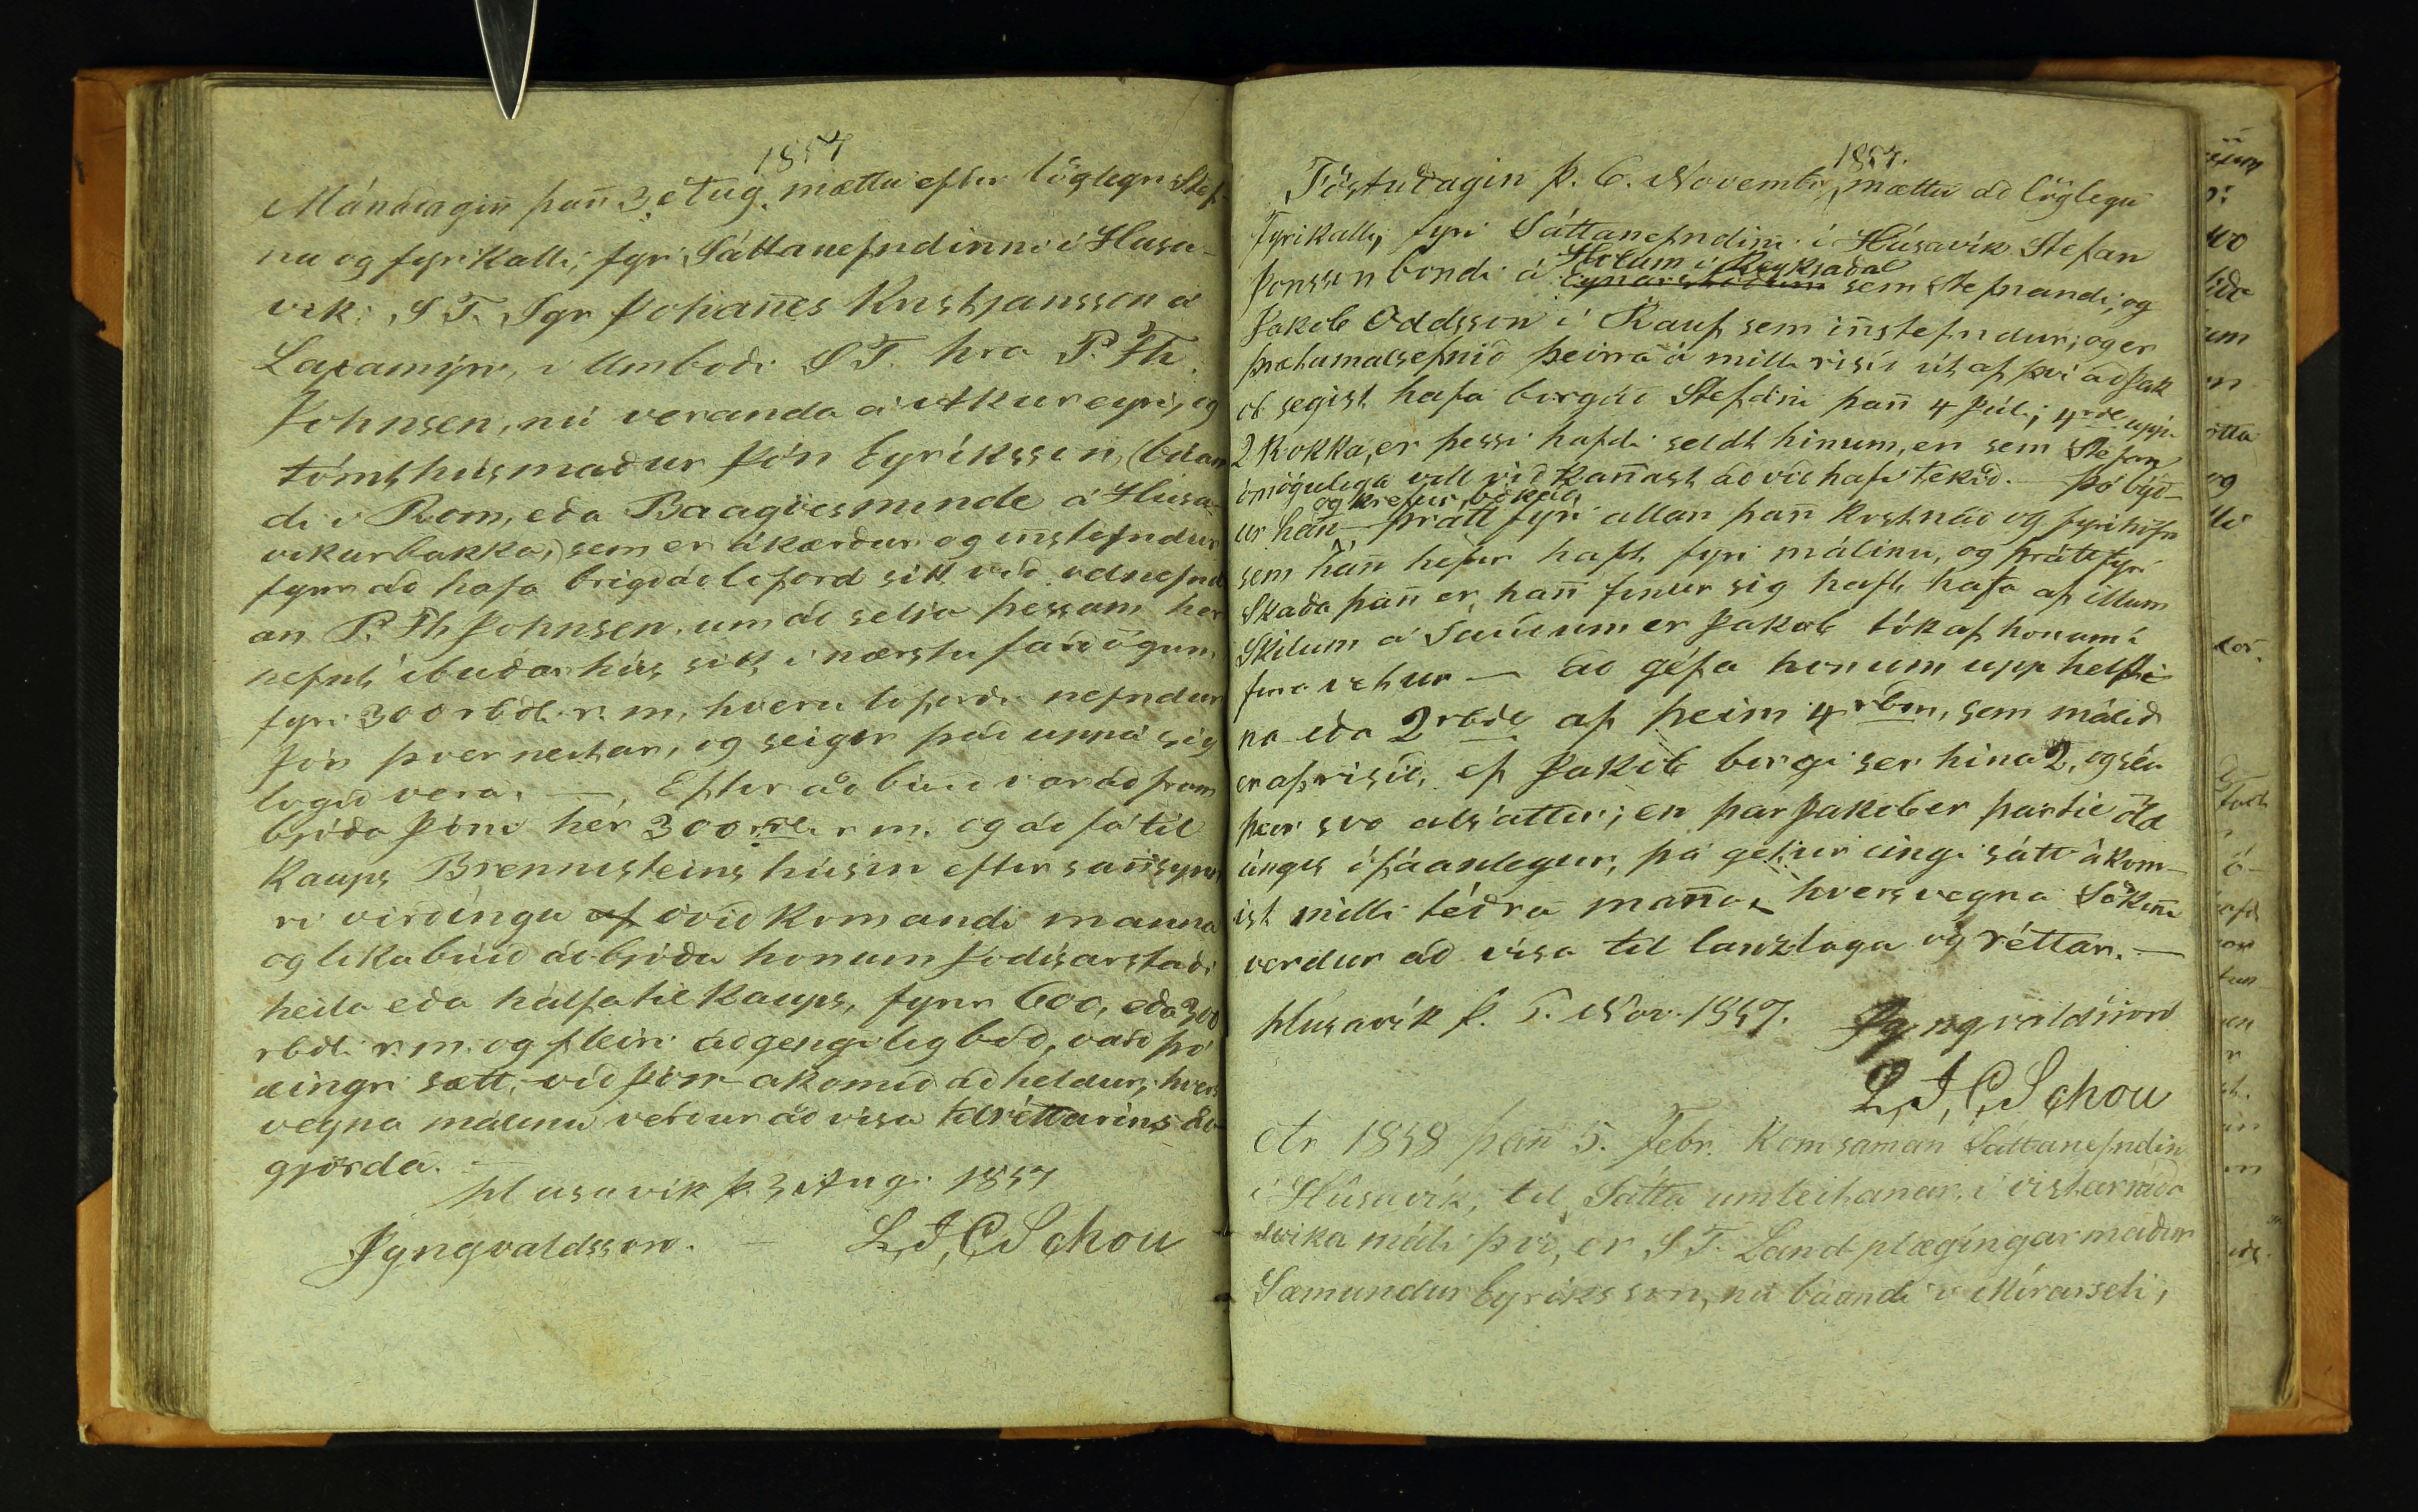 1857
Mánudaginn þann 3. Aug. mættu eftir löglegri Stef-
nu og fyrikalli, fyri Sáttanefndinni í Husa-
vik: S. T. Sgr Johannes Kristjansson á
Laxamýri, i Umboði S. T. hra P. Th.
Johnsen, nú veranda á Akureyri, og
tómthúsmaður Jón Eyríksson, (búan
di i Rom, eða Baagöesminde á Húsa-
vikurbakka,) sem er ákærður og innstefndur
fyrir að hafa brigðað loford sitt við velnefnd
an P. Th Johnsen, um að selja þessum her
nefnt íbúðarhús sitt i næstu fardögum,
fyri 300 rbdl. r. m. hveru loforði nefndur
Jón þverneitar, og seiger það uppá sig
logið vera. — Eftir að búið var að fram
bjóða Jóni hér 300 rdl. r m. og að fá til
Kaups Brennisteins húsin eftir sannsyn
ri virðingu af óviðkomandi manna
og lika búið að bjóða honum Jódísarstaði
heila eða hálfa til Kaups, fyrir 600, eða 300
rbdl. r. m. og fleiri aðgengileg boð, varð þó
eingri sætt við Jón ákomið að heldur, hvers
vegna málinu verður að visa til réttarins að-
gjörda. —
Husavik þ. 3 Aug. 1857
JYngvaldsson. — L, J, C Schou
1857.
Föstudagin þ. 6. Novembr. mættu að löglegu
Fyrikalli, fyri Sáttanefndinni í Húsavík Stefan
Jonsson bondi á
Hólum i Reykjadal
sem Stefnandi, og
Jakob Oddsson i Kauf sem innstefndur; og er
þrætumálsefnið þeirra á milli risið út af því að Jak
ob segist hafa borgað Stefáni þann 4 Júli, 4 rdl uppi
2 Rokka, er þessi hafdi seldt hinum, en sem Stefan
ómögulega vill við kannast að við hafi tekið. — Þó býð-
og krefur
ur hann þrátt fyri allan þann kostnað og fyrihöfn
sem hann hefur haft fyri málinu, og þrátt fyri
Skaða þann er hann finnur sig haft hafa af illum
Skilum á Sauðum er Jakob tók af honum i
fyrra vetur — að géfa honum upp helfti-
na eða 2 rbdl af þeim 4 rbm, sem málið
er afrisið, ef Jakob borgi ser hina 2, og séu
þeir svo alsáttir; en þar Jakob er partie
ófáanlegur, þá getur eingi sátt ákom-
ist milli téðra manna, hversvegna Sökinni
verdur að vísa til landslaga og réttar. —
Husavík þ. 6. Nov. 1857. JYngvaldsson
L, J, C Schou
Ar 1858 þann 5. Febr. Kom saman Sáttanefndin
i Húsavík, til Sátta umleitanar i vistarráða
svika máli því, er S T. Landplægingarmaður
Sæmundur Eyríksson, nú búandi i Mírarseli,